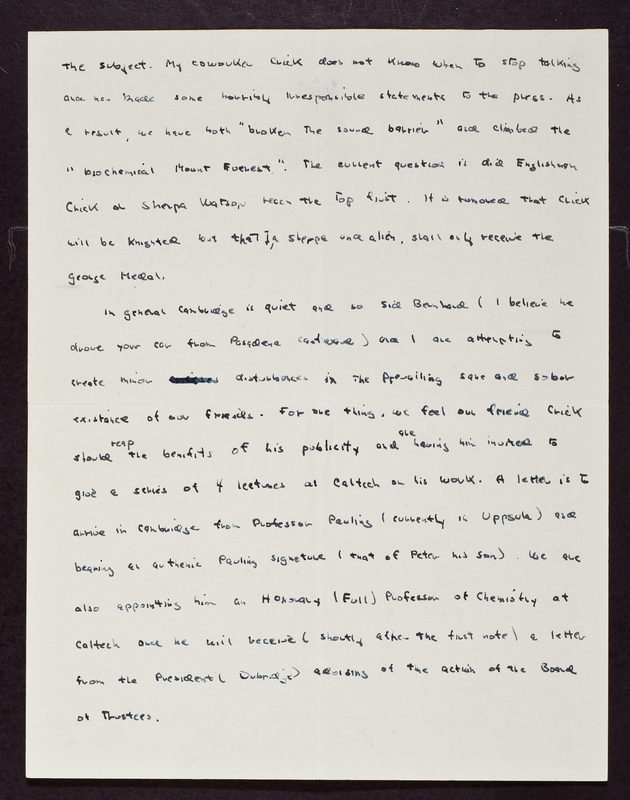 the subject. My coworker Crick does not know when to stop talking
and has made some horribly irresponsible statements to the press. As
a result, we have both "broken the sound barrier" and climbed the
"biochemical Mount Everest". The current question is did Englishman
Crick or Sherpa Watson reach the top first. It is rumored that Crick
will be knighted but that I, a sherpa and alien, shall only receive the
George Medal.
In general Cambridge is quiet and so Sid Bernhard (I believe he
drove your car from Pasadena eastward) and I are attempting to
create minor disturbances in the prevailing sane and sober
existance of our friends. For one thing, we feel our friend Crick
should reap the benifits of his publicity and are having him invited to
give a series of 4 lectures at Caltech on his work. A letter is to
arrive in Cambridge from Professor Pauling (currently in Uppsula) and
bearing an authenic Pauling signature (that of Peter his son). We are
also appointing him an Honorary (Full) Professor of Chemistry at
Caltech and he will receive (shortly after the first note) a letter
from the President (Dubridge) advising of the action of the Board
of Trustees.